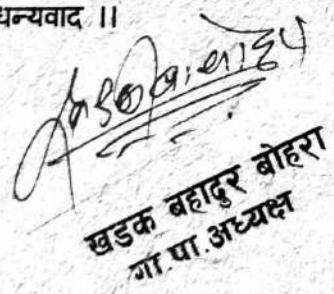 धन्यवाद ।।
खडक बहादुर बोहरा
गा.पा.अध्यक्ष